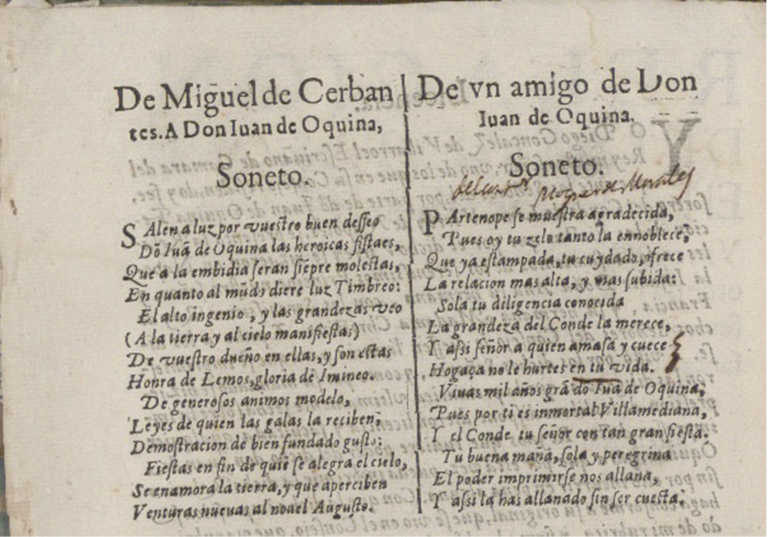 De Miguel de Cerban
tes. A Don Iuan de Oquina,
Soneto.
SAlen a luz por vuestro buen desseo
Dō Iuā de Oquina las heroicas fiestas,
Que a la embidia seran siēpre molestas,
En quanto al mūdo diere luz Timbreo:
El alto ingenio, y las grandezas veo
(A la tierra y al cielo manifiestas)
De vuestro dueño en ellas, y son estas
Honra de Lemos, gloria de Imineo.
De generosos animos modelo,
Leyes de quien las galas la reciben;
Demostracion de bien fundado gusto;
Fiestas en fin de quiē se alegra el cielo,
Se enamora la tierra, y que aperciben
Venturas nueuas al nouel Augusto.
De vn amigo de Don
Iuan de Oquina.
Soneto.
de Morales
PArtenope se muestra agradecida,
Pues oy tu zelo tanto la ennoblece,
Que ya estampada, tu cuydado, ofrece
La relacion mas alta, y mas subida:
Sola tu diligencia conocida
La grandeza del Conde la merece,
Y assi señor a quien amasa y cuece
Hogaça no le hurtes en tu vida.
Viuas mil años grā dō Iuā de Oquina,
Pues por ti es inmortal Villamediana,
Y el Conde tu señor con tan gran fiesta.
Tu buena maña, sola y peregrina
El poder imprimirse nos allana,
Y assi la has allanado sin ser cuesta.